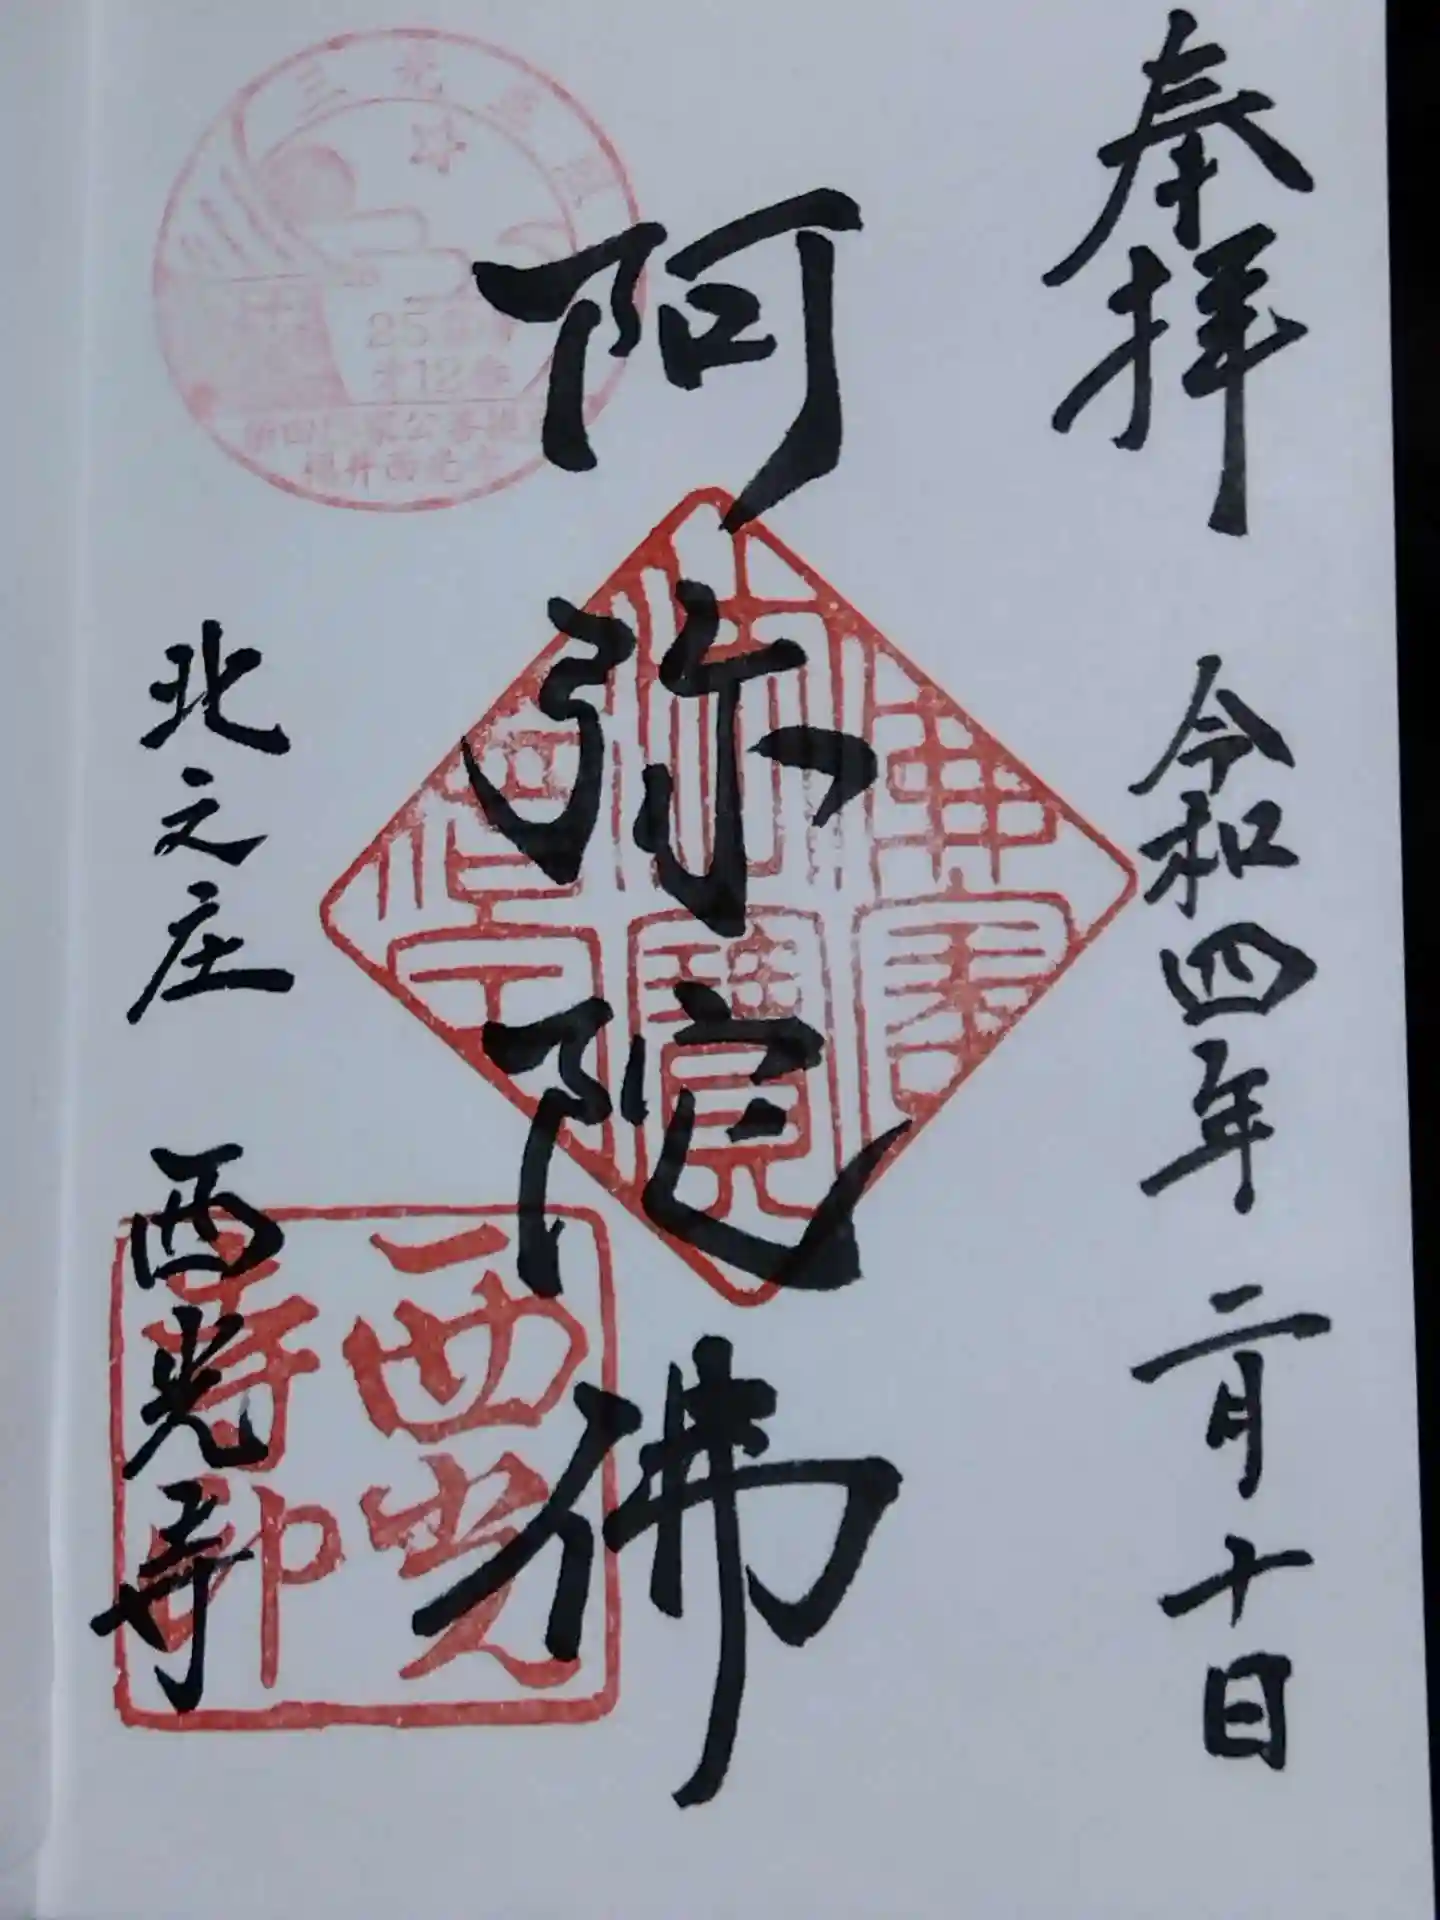 奉拝
令和四年二月十日
阿弥陀佛
北之庄
西光寺
佛法僧寶
西光寺印
三光
福井西光寺